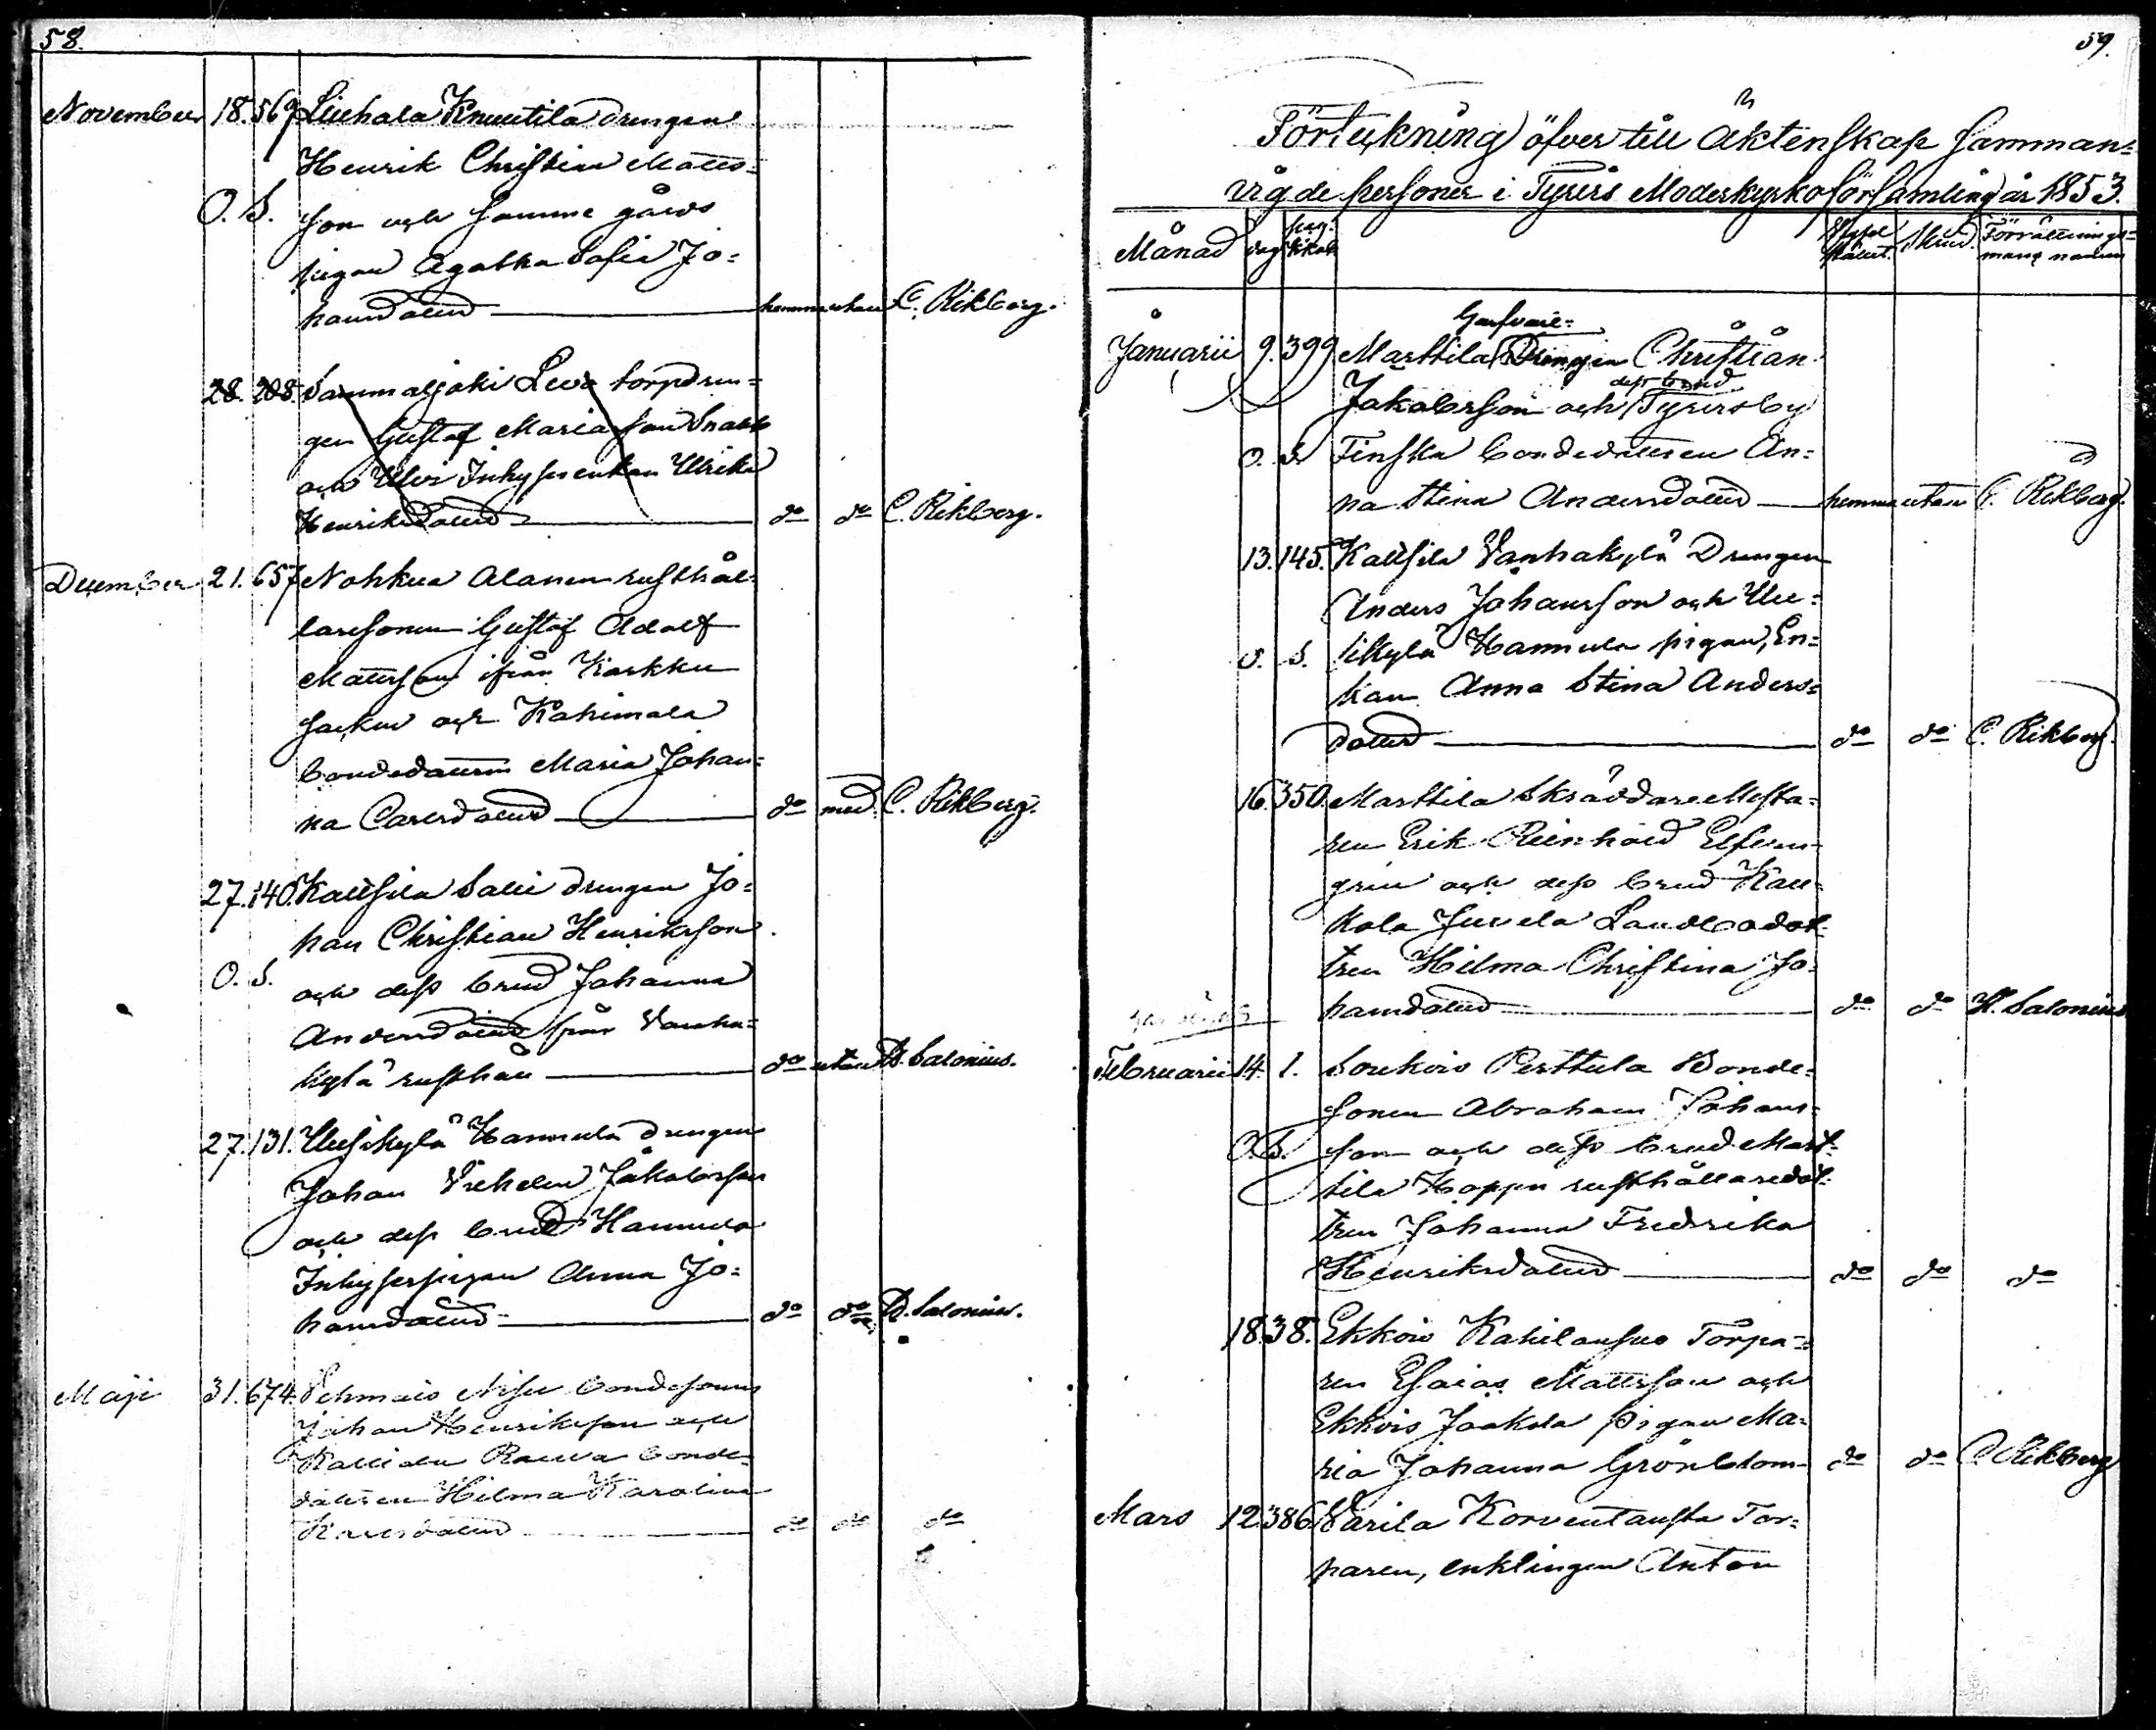 58.
November 18. 569 Liuhala Knuutila drengen
Henrik Christian Matts=
O. S. son och samma gårds
pigan Agatha Sofia Jo=
hansdotter hemma utan C. Rikberg.
28. 208. Sammaljoki Levo torpdren=
gen Gustaf Mariasson Snabb
och Ulvi Inhysesenkan Ulrika
Henriksdotter do do C. Rikberg.
December 21. 657 Nohkua Alanen rusthål=
laresonen Gustaf Adolf
Mattsson ifrån Karkku
socken och Kahimala
bondedottren Maria Johan=
na Carlsdotter do med C. Rikberg.
27. 140. Kallsila Salli drengen Jo=
han Christian Henriksson
O. S. och dess brud Johanna
Andersdotter från Vanha=
kylä rusthåll do utan H. Salonius.
27. 131. Uusikylä Hannula drengen
Johan Vilhelm Jakobsson
och dess brud Hannula
Inhysespigan Anna Jo=
hansdotter do do H. Salonius.
Maji 31. 674. Vehmais Nisu bondesonen
Johan Henriksson och
Kallialu Rauva bonde=
dottren Hilma Karolina
Karlsdotter do do do
59.
Förteckning öfver till Äktenskap samman=
vigde personer i Tyrvis Moderkyrkoförsamling år 1853.
Månad dag pag. Stupo stället. Skrud. Förrättnings=
mans namn
Garfvare=
Januarii 9. 399 Marttila Drengen Christian
dess brud
Jakobsson och Tyrvisby
O. S. Finska bondedottren An=
na Stina Andersdotter hemma utan C. Rikberg.
13. 145. Kallsila Vanhakylä Drengen
Anders Johansson och Uu=
O. S. sikylä Hannula pigan, En=
kan Anna Stina Anders=
dotter do do C. Rikberg.
16. 350. Marttila Skräddare Mästa=
ren Erik Reinhold Elfven=
gren och dess brud Kau=
kola Juvela Landbodot=
tren Hilma Christina Jo=
hansdotter do do H. Salonius
Februarii 14. 1. Soukois Perttula Bonde=
sonen Abraham Johans=
O. S. son och dess brud Mart=
tila Hoppu rusthållaredot=
tren Johanna Fredrika
Henriksdotter do do do
18. 38. Ekkois Kahilansuo Torpa=
ren Esaias Mattsson och
Ekkois Jaakola Pigan Ma=
ria Johanna Grönblom do do C. Rikberg
Mars 12. 386. Varila Korventausta Tor=
paren, enklingen Anton